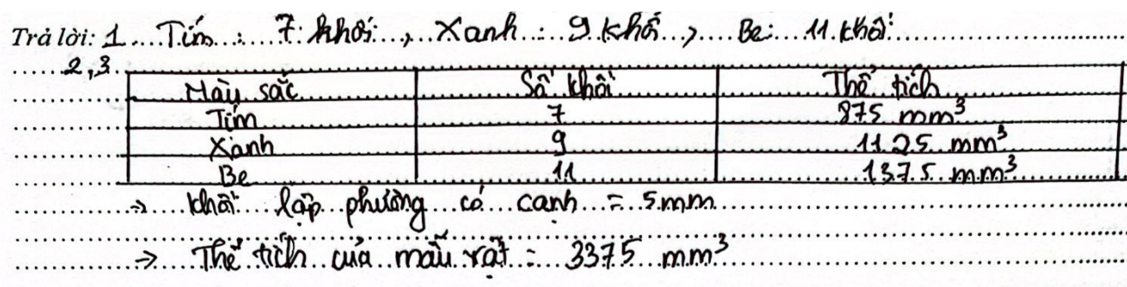 Trả lời: 1. Tím: 7 khối, Xanh: 9 khối, Be: 11 khối
2,3
Màu sắc Số khối Thể tích
Tím 7 875 mm³
Xanh 9 1125 mm³
Be 11 1375 mm³
→ khối lập phương có cạnh = 5mm
→ Thể tích của mẫu vật = 3375 mm³